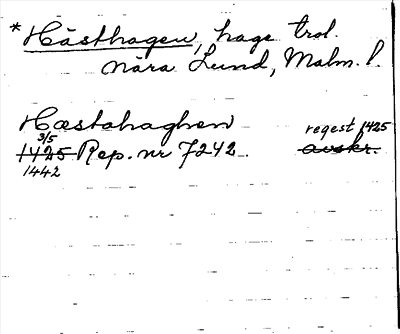 *Hästhagen, hage trol.
nära Lund, Malm. l.
Hæstahaghen regest 1425
3/5
1425 Rep. nr 7242. avskr.
1442